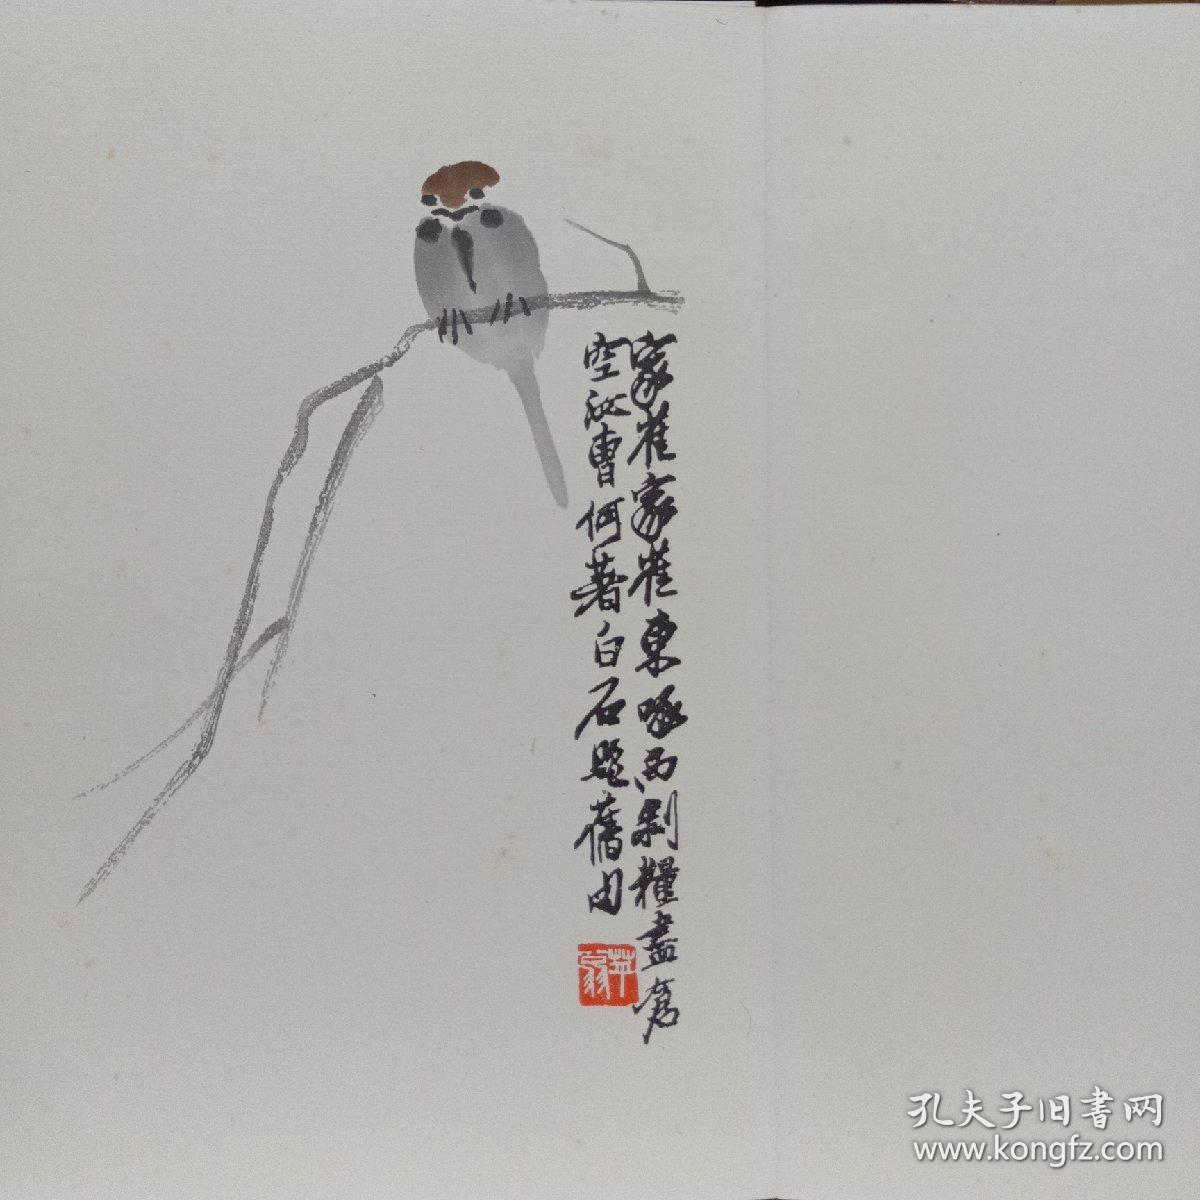 家雀家雀東啄西剥糧盡倉
空汝曹何著白石題舊句
苹翁
孔夫子旧書网
www.kongfz.com